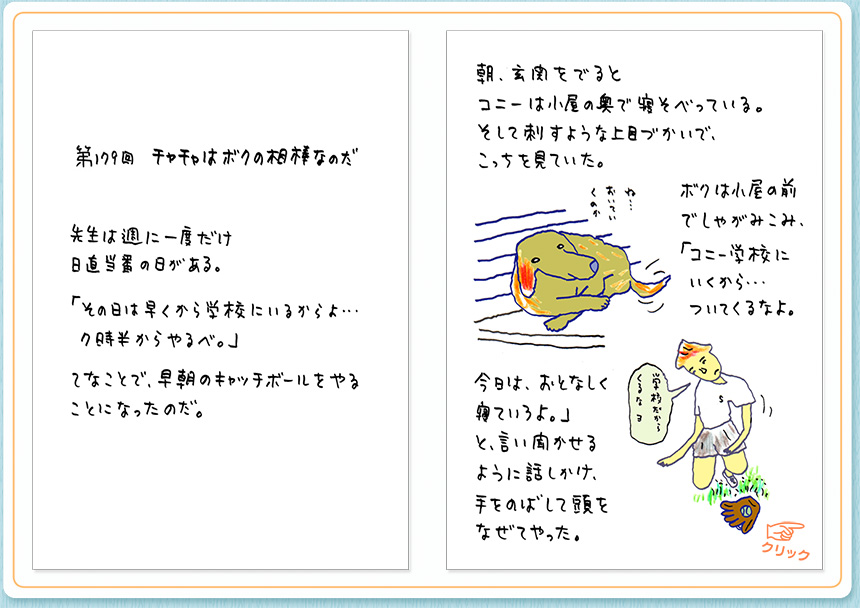 第179回 チャチャはボクの相棒なのだ
先生は週に一度だけ
日直当番の日がある。
「その日は早くから学校にいるからよ…
7時半からやるべ。」
てなことで、早朝のキャッチボールをやる
ことになったのだ。
朝、玄関をでると
コニーは小屋の奥で寝そべっている。
そして刺すような上目づかいで、
こっちを見ていた。
ね…
おいてい
くのか
ボクは小屋の前
でしゃがみこみ、
「コニー学校に
いくから…
ついてくるなよ。
学校だから
くるなヨ
S
今日は、おとなしく
寝ていろよ。」
と、言い聞かせる
ように話しかけ、
手をのばして頭を
なぜてやった。
クリック